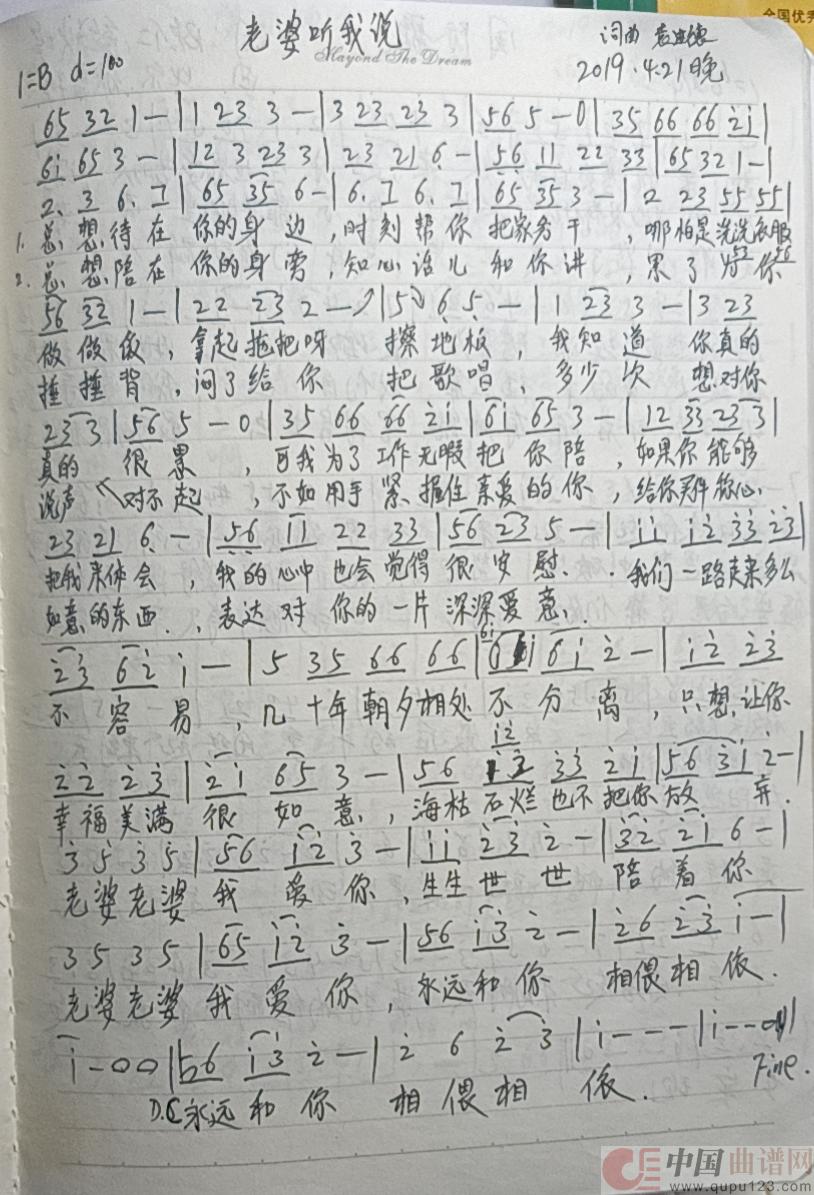 全国优秀
老婆听我说
Mayond The Dream
词曲
2019.4.21晚
1=B d=100
65 32 1 - | 1 23 3 - | 3 23 23 3 | 56 5 - 0 | 35 66 66 2̇1̇ |
61̇ 65 3 - | 12 3 23 3 | 23 21 6̣ - | 5̣6̣ 11 22 33 | 65 32 1 - |
2. 3 6. 1 | 65 35 6 - | 6. 1 6. 1 | 65 35 3 - | 2 23 55 55 |
1. 总想待在 你的身边,时刻帮你 把家务干,哪怕是洗洗衣服
2. 总想陪在 你的身旁,知心话儿 和你讲,累了为你
56 32 1 - | 22 23 2 - | 5̣ 6̣ 5̣ - | 1 23 3 - | 3 23
做做饭,拿起拖把呀 擦地板,我知道 你真的
捶捶背,闷了给你 把歌唱,多少次 想对你
23 3 | 56 5 - 0 | 35 66 66 2̇1̇ | 61̇ 65 3 - | 12 33 23 3 |
真的 很累,可我为了工作无暇把你陪,如果你能够
说声 对不起,不如用手紧握住亲爱的你,给你买件称心
23 21 6̣ - | 5̣6̣ 11 22 33 | 56 23 5 - | 1̇1̇ 1̇2̇ 3̇3̇ 2̇3̇ |
把我来体会,我的心中也会觉得很安慰..我们一路走来多么
如意的东西.,表达对你的一片深深爱意.
2̇3̇ 62̇ 1̇ - | 5 35 66 66 | 61̇ 61̇ 2̇ - | 1̇2̇ 2̇3̇
不容易,几十年朝夕相处不分离,只想让你
2̇2̇ 2̇3̇ | 2̇1̇ 65 3 - | 56 1̇2̇ 3̇3̇ 2̇1̇ | 56 3̇1̇ 2̇ - |
幸福美满 很如意,海枯石烂也不把你放弃.
3̇ 5 3̇ 5 | 56 1̇2̇ 3̇ - | 1̇1̇ 2̇3̇ 2̇ - | 3̇2̇ 2̇1̇ 6 - |
老婆老婆 我爱你,生生世世 陪着你
3 5 3 5 | 65 1̇2̇ 3̇ - | 56 1̇3̇ 2̇ - | 2̇6 2̇3̇ 1̇ - |
老婆老婆 我爱你,永远和你 相偎相依.
1̇ - 0 0 | 56 1̇3̇ 2̇ - | 2̇ 6 2̇ 3̇ | 1̇ - - - | 1̇ - - 0 ||
D.C永远和你 相偎相依. Fine.
中国曲谱网
www.qupu123.com